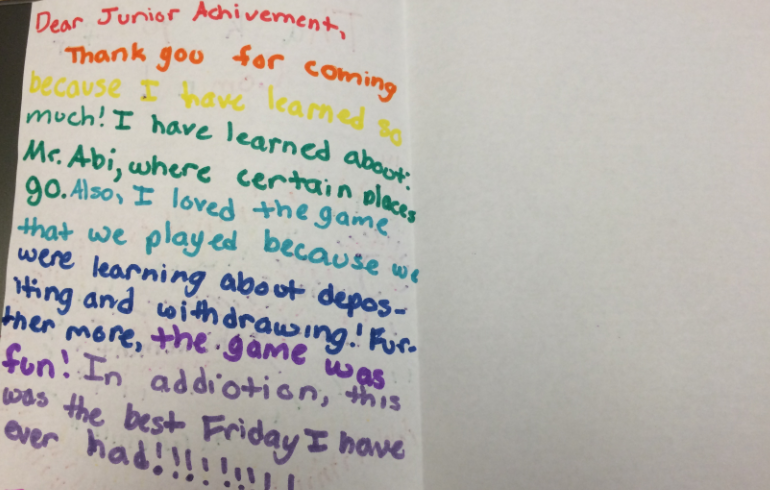 Dear Junior Achivement,
Thank you for coming
because I have learned so
much! I have learned about:
Mr. Abi, where certain places
go. Also, I loved the game
that we played because we
were learning about depos-
iting and withdrawing! Fur-
ther more, the game was
fun! In addiotion, this
was the best Friday I have
ever had!!!!!!!!!